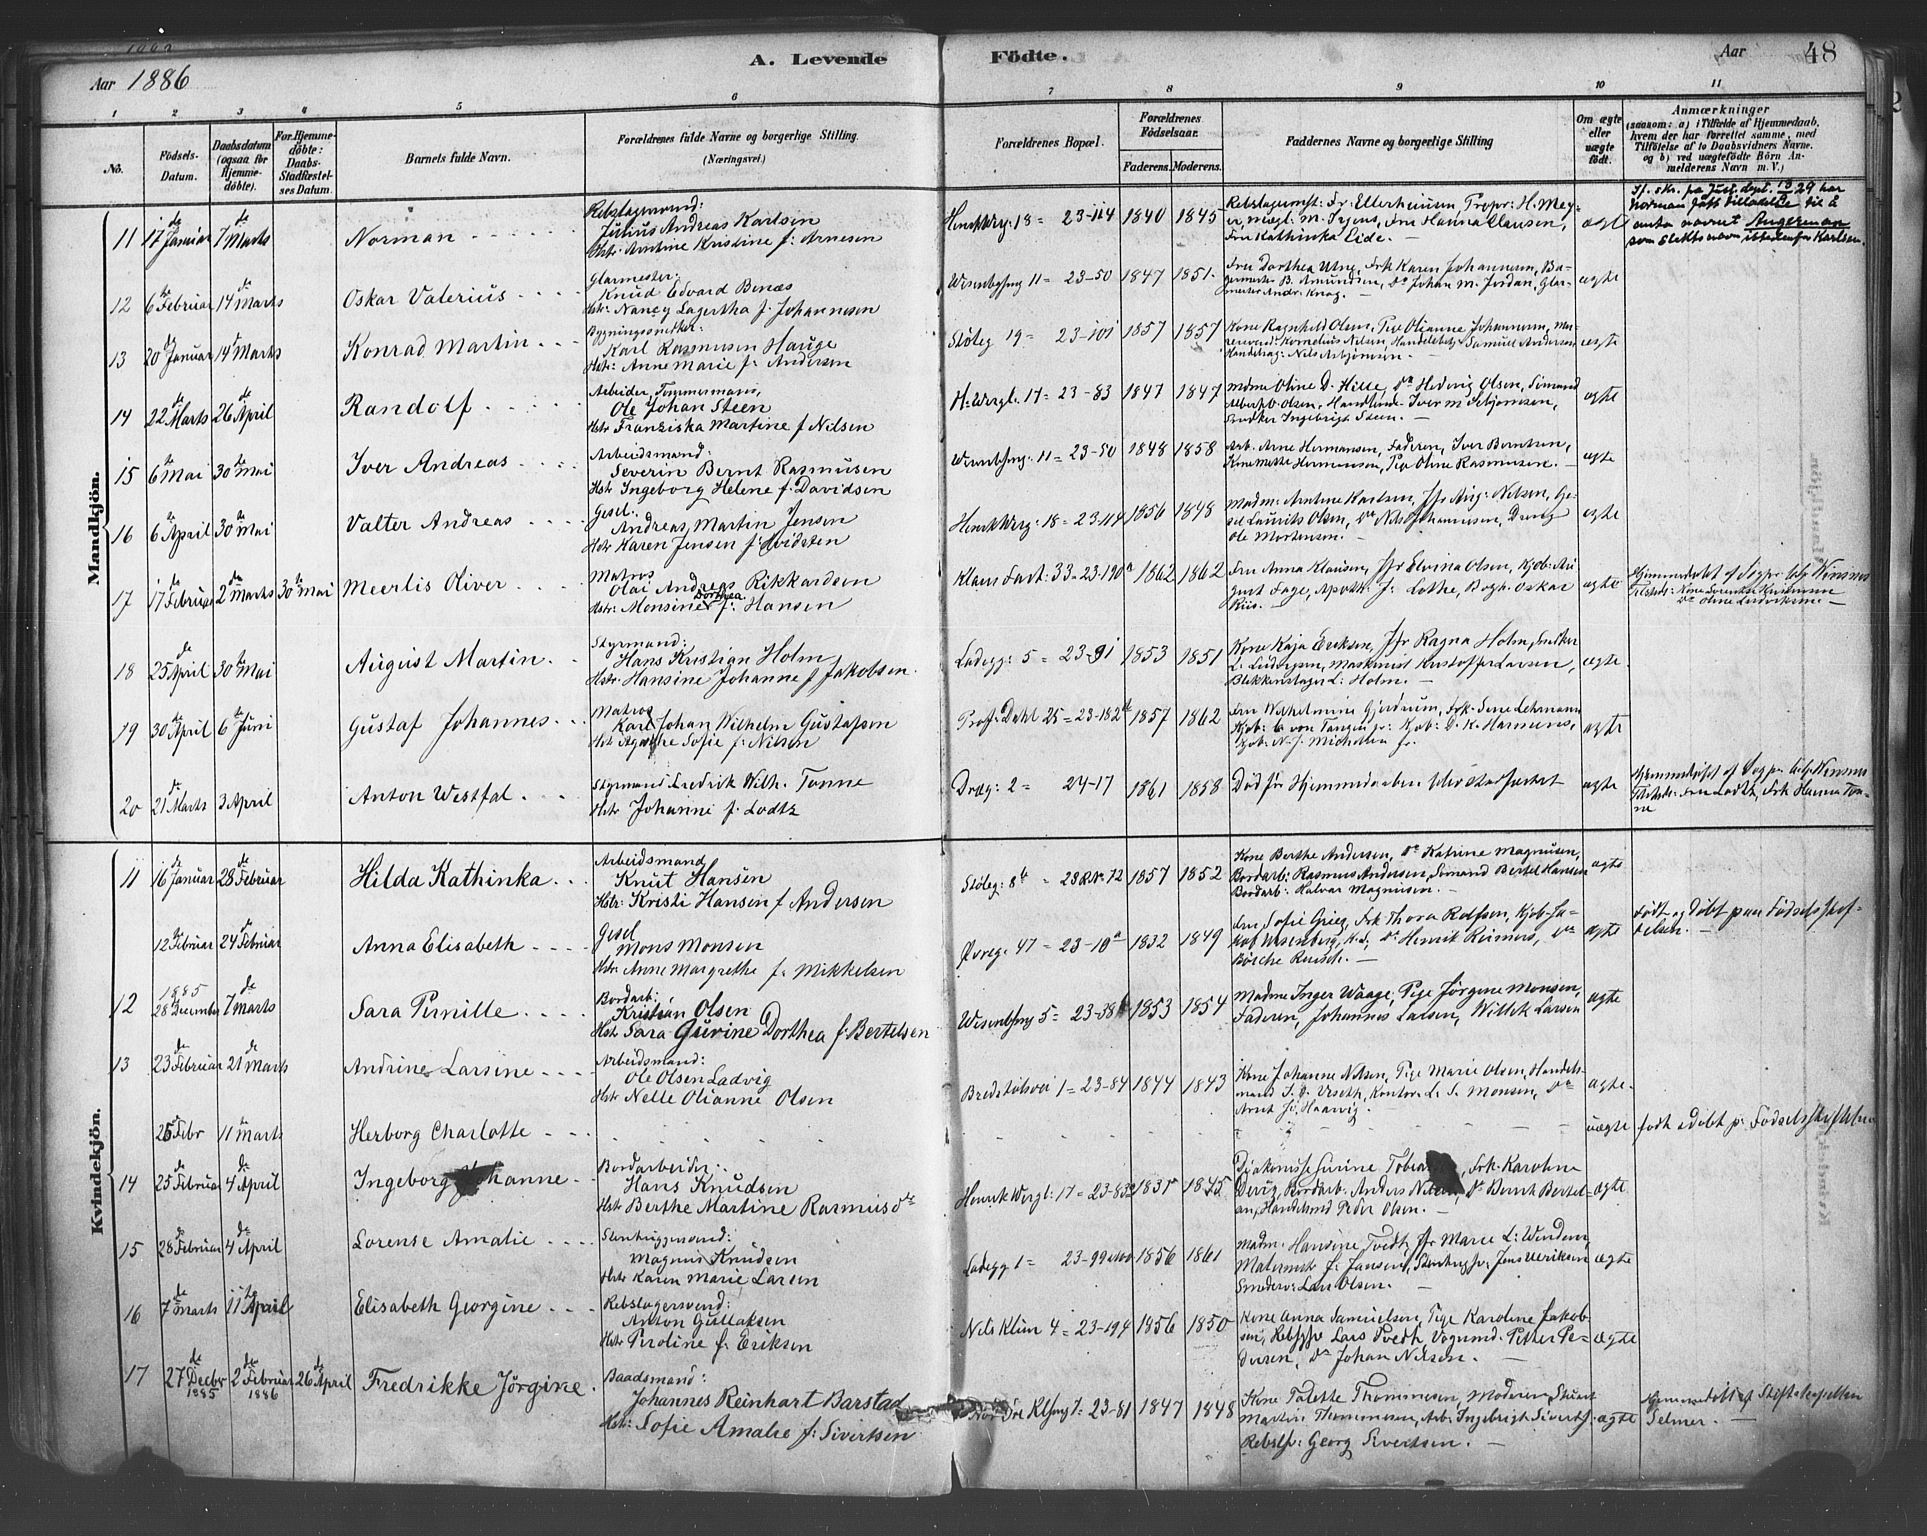 A. Levende Födte.
Aar 1886
Aar 48
1 2 3 4 5 6 7 8 9 10 11
No.
Födsels-Datum.
Daabsdatum (ogsaa for Hjemme-döbte).
For Hjemme-döbte: Daabs-Stadfæstel-ses Datum.
Barnets fulde Navn.
Forældrenes fulde Navne og borgerlige Stilling. (Næringsvei.)
Forældrenes Bopæl.
Forældrenes Födselsaar.
Faderens. Moderens.
Faddernes Navne og borgerlige Stilling
Om ægte eller uægte födt.
Anmærkninger
(saasom: a) i Tilfælde af Hjemmedaab, hvem der har forrettet samme, med Tilföielse af to Daabsvidners Navne. og b) ved uægtefödte Börn An-melderens Navn m. V.)
Mandkjön.
11 17de Januar 7de Marts Norman
Rebslagersvend:
Julius Andreas Karlsen
Hstr: Antine Kristine f: Arnesen
Henrk Wrg: 18 = 23-114 1840 1845
Fru Hanna Clausen,
Fru Kathinka Eide. ægte
norman fått tilladelse til å
anta navnet Angerman
som slektsnavn istedenfor Karlsen.
12 6te Februar 14de Marts Oskar Valerius
Glarmester:
Knud Edvard Benæs
Hstr: Nancy Lagertha f. Johannesen
Wesenbgsmg 11 = 23-50 1847 1851
Fru Dorthea Utne, Frk Karen Johannesen, Ba-
germester B. Amundsen, Do Johan M. Jordan, Glar-
mester Andr. Knag. ægte
13 20de Januar 14de Marts Konrad Martin
Bygningssnedker:
Karl Rasmusen Hauge
Hstr: Anne Marie f: Andersen
Stöleg 19 = 23-101 1857 1857
Kone Ragnhild Olsen, Pige Olianne Johannesen,
Kornelius Nilsen, Samuel Andersen
Nils Asbjörnsen. ægte
14 22de Marts 26de April Randolf
Arbeider, Tømmermand,
Ole Johan Steen
Hstr Franziska Martine f Nilsen
H: Wergl. 17 = 23-83 1847 1847
Madm Oline D. Hille, Do Hedvig Olsen, Sömand
Albert O. Olsen, Iver M Asbjörnsen,
Snedker Ingebrigt Steen. ægte
15 6te Mai 30te Mai Iver Andreas
Arbeidsmand:
Severin Bernt Rasmusen
Hstr Ingeborg Helene f: Davidsen
Wesenbsmg: 11 = 23-50 1848 1858
Arb. Arne Hermansen, Faderen, Iver Berntsen,
Kone Mette Hermansen, Pige Oline Rasmusen. ægte
16 6te April 30te Mai Valter Andreas
Gesel:
Andreas Martin Jensen
Hstr Karen Jensen f:
Henrk Werg: 18 = 23-114 1856 1848
Madm: Antine Karlsen, Jfr Aug: Nilsen, Ge-
sel Laurits Olsen, Do Nils Johannesen, Dreng
Ole Mortensen. ægte
17 17de Februar 2de Marts 30te Mai Meerlis Oliver
Matros
Olai Andreas Rikkardsen
Hstr: Monsine Dorthea f: Hansen
Klaus Fast: 33 = 23-190a 1862 1862
Fru Anna Klausen, Jfr Elvina Olsen, Kjöb: Au-
gust Fage, Apoth: J: Lothe, Bogh: Oskar
Riis. ægte
Hjemmedøbt af Sogpr
18 25de April 30te Mai August Martin
Styrmand:
Hans Kristian Holm
Hstr: Hansine Johanne f Jakobsen.
Ladegg: 5 = 23-91 1853 1851
Kone Kaja Eriksen, Jfr Ragna Holm, Snedker
L: Ludvigsen, Maskinist Kristoffer Larsen,
Blikkenslager L: Holm. ægte
19 30te April 6te Juni Gustaf Johannes
Matros
Karl Johan Wilhelm Gustafsen
Hstr Agathe Sofie f: Nilsen
Prof: Dahl 25 = 23-182 1857 1862
Fru Wilhelmine Gjerdrum, Frk. Lehmann
Kjöb: C von Tangen jr: Kjöb: D. K. Hansens,
Kjöb: N. J. Michelsen jr. ægte
20 21de Marts 3 April Anton Westfal
Styrmand Fredrik Wilh. Tonne
Hstr Johanne f. Lodtz
Dræg: 2 = 24-17 1861 1858
Död før Hjemmedaaben blev stadfæstet ægte
Fru Lodtz, Frk Hanna Ton-
ne
Kvindekjön.
11 16de Januar 28de Februar Hilda Kathinka
Arbeidsmand
Knut Hansen
Hstr: Kristi Hansen f Andersen
Stöleg: 8b = 23 R No 12 1857 1852
Kone Berthe Andersen, Do Katrine Magnusen,
Bordarb: Rasmus Andersen, Sömand Bertel Hansen
Bordarb: Halvar Magnusen. ægte
12te Februar 24de Februar Anna Elisabeth
Gesel
Mons Monsen
Hstr Anne Margrethe f: Mikkelsen
Övreg: 47 = 23-10a 1832 1849
Fru Sofie Grieg, Frk Thora Rolfsen, Kjöb: Ja-
kob Wesenberg, Do Henrik Reimers, Do
Börche Reusch. ægte
Födt og Döbt paa Födselsstif-
telsen.
12 1885 28de December 7de Marts Sara Pernille
Bordarb:
Kristian Olsen
Hstr Sara Gurine Dorthea f: Bertelsen
Wesenbsmg 5 = 23-38b 1853 1854
Madme Inger Waage, Pige Jörgine Monsen,
Faderen, Johannes Larsen, Willek Larsen ægte
13 23de Februar 21de Marts Andrine Larsine
Arbeidsmand:
Ole Olsen Ladvig
Hstr Nelle Olianne Olsen
Bredstölsvei 1 = 23-84 1844 1843
Kone Johanne Nilsen, Pige Marie Olsen, Handels-
mand S. O. Urseth, Kontor: L. S. Monsen, Do
Arnt Haarvig. ægte
25 Febr 11te Marts Herborg Charlotte uægte födt & döbt p: Födselsstiftelsen
14 25de Februar 4de April Ingeborg Johanne
Bordarbeider:
Hans Knudsen
Hstr Berthe Martine Rasmusdtr
Henrik Wergl: 17 = 23-83 1837 1845
Diakonisse Gurine Frk. Karoline
Anders Nilsen, Do Bernt Bertel-
sen, Peder Olsen. ægte
15 28de Februar 4de April Lorense Amalie
Stenhuggersvend:
Magnus Knudsen
Hstr Karen Marie Larsen
Ladegg 1 = 23-99 1856 1861
Madm: Hansine Tvedt, Jfr Marie L:
Malermstr J: Jansen, Jens Ulriksen
Smedesv: Lars Olsen. ægte
16 7de Marts 11te April Elisabeth Georgine
Rebslagersvend:
Anton Gullaksen
Hstr Peroline f: Eriksen
Nils Klim 4 = 23-194 1856 1850
Kone Anna Samuelsen, Pige Karoline Jakob-
sen, Lars Tvedt, Vognmd. Petter Pe-
dersen, Do Johan Nilsen. ægte
17 27de Decbr 1885 2de Februar 1886 26de April Fredrikke Jörgine
Baadsmand:
Johannes Reinhart Barstad
Hstr: Sofie Amalie f: Sivertsen
7 = 23-81 1847 1848
Kone Talette Thommesen, Moderen,
Martin Thommesen, Arb: Ingebrigt Sivertsen
Rebslsv: Georg Sivertsen. ægte
Hjemmedöbt af Stiftskapellan
Selmer.